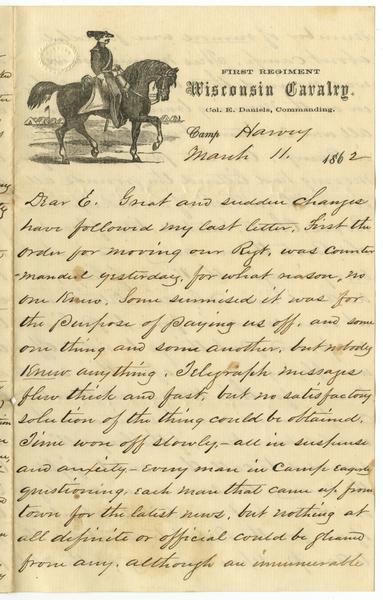 FIRST REGIMENT
Wisconsin Cavalry.
Col. E. Daniels, Commanding.
Camp Harvey
March 11. 1862
Dear E. Great and sudden changes
have followed my last letter. First the
order for moving our Regt, was counter
-manded yesterday, for what reason, no
one knew. Some surmised it was for
the purpose of paying us off, and some
one thing and some another, but nobody
knew anything. Telegraph messages
flew thick and fast, but no satisfactory
solution of the thing could be obtained.
Time wore off slowly - all in suspense
and anxiety - every man in Camp eagerly
questioning, each man that came up from
town for the latest news, but nothing at
all definite or official could be gleaned
from any. although an innumerable